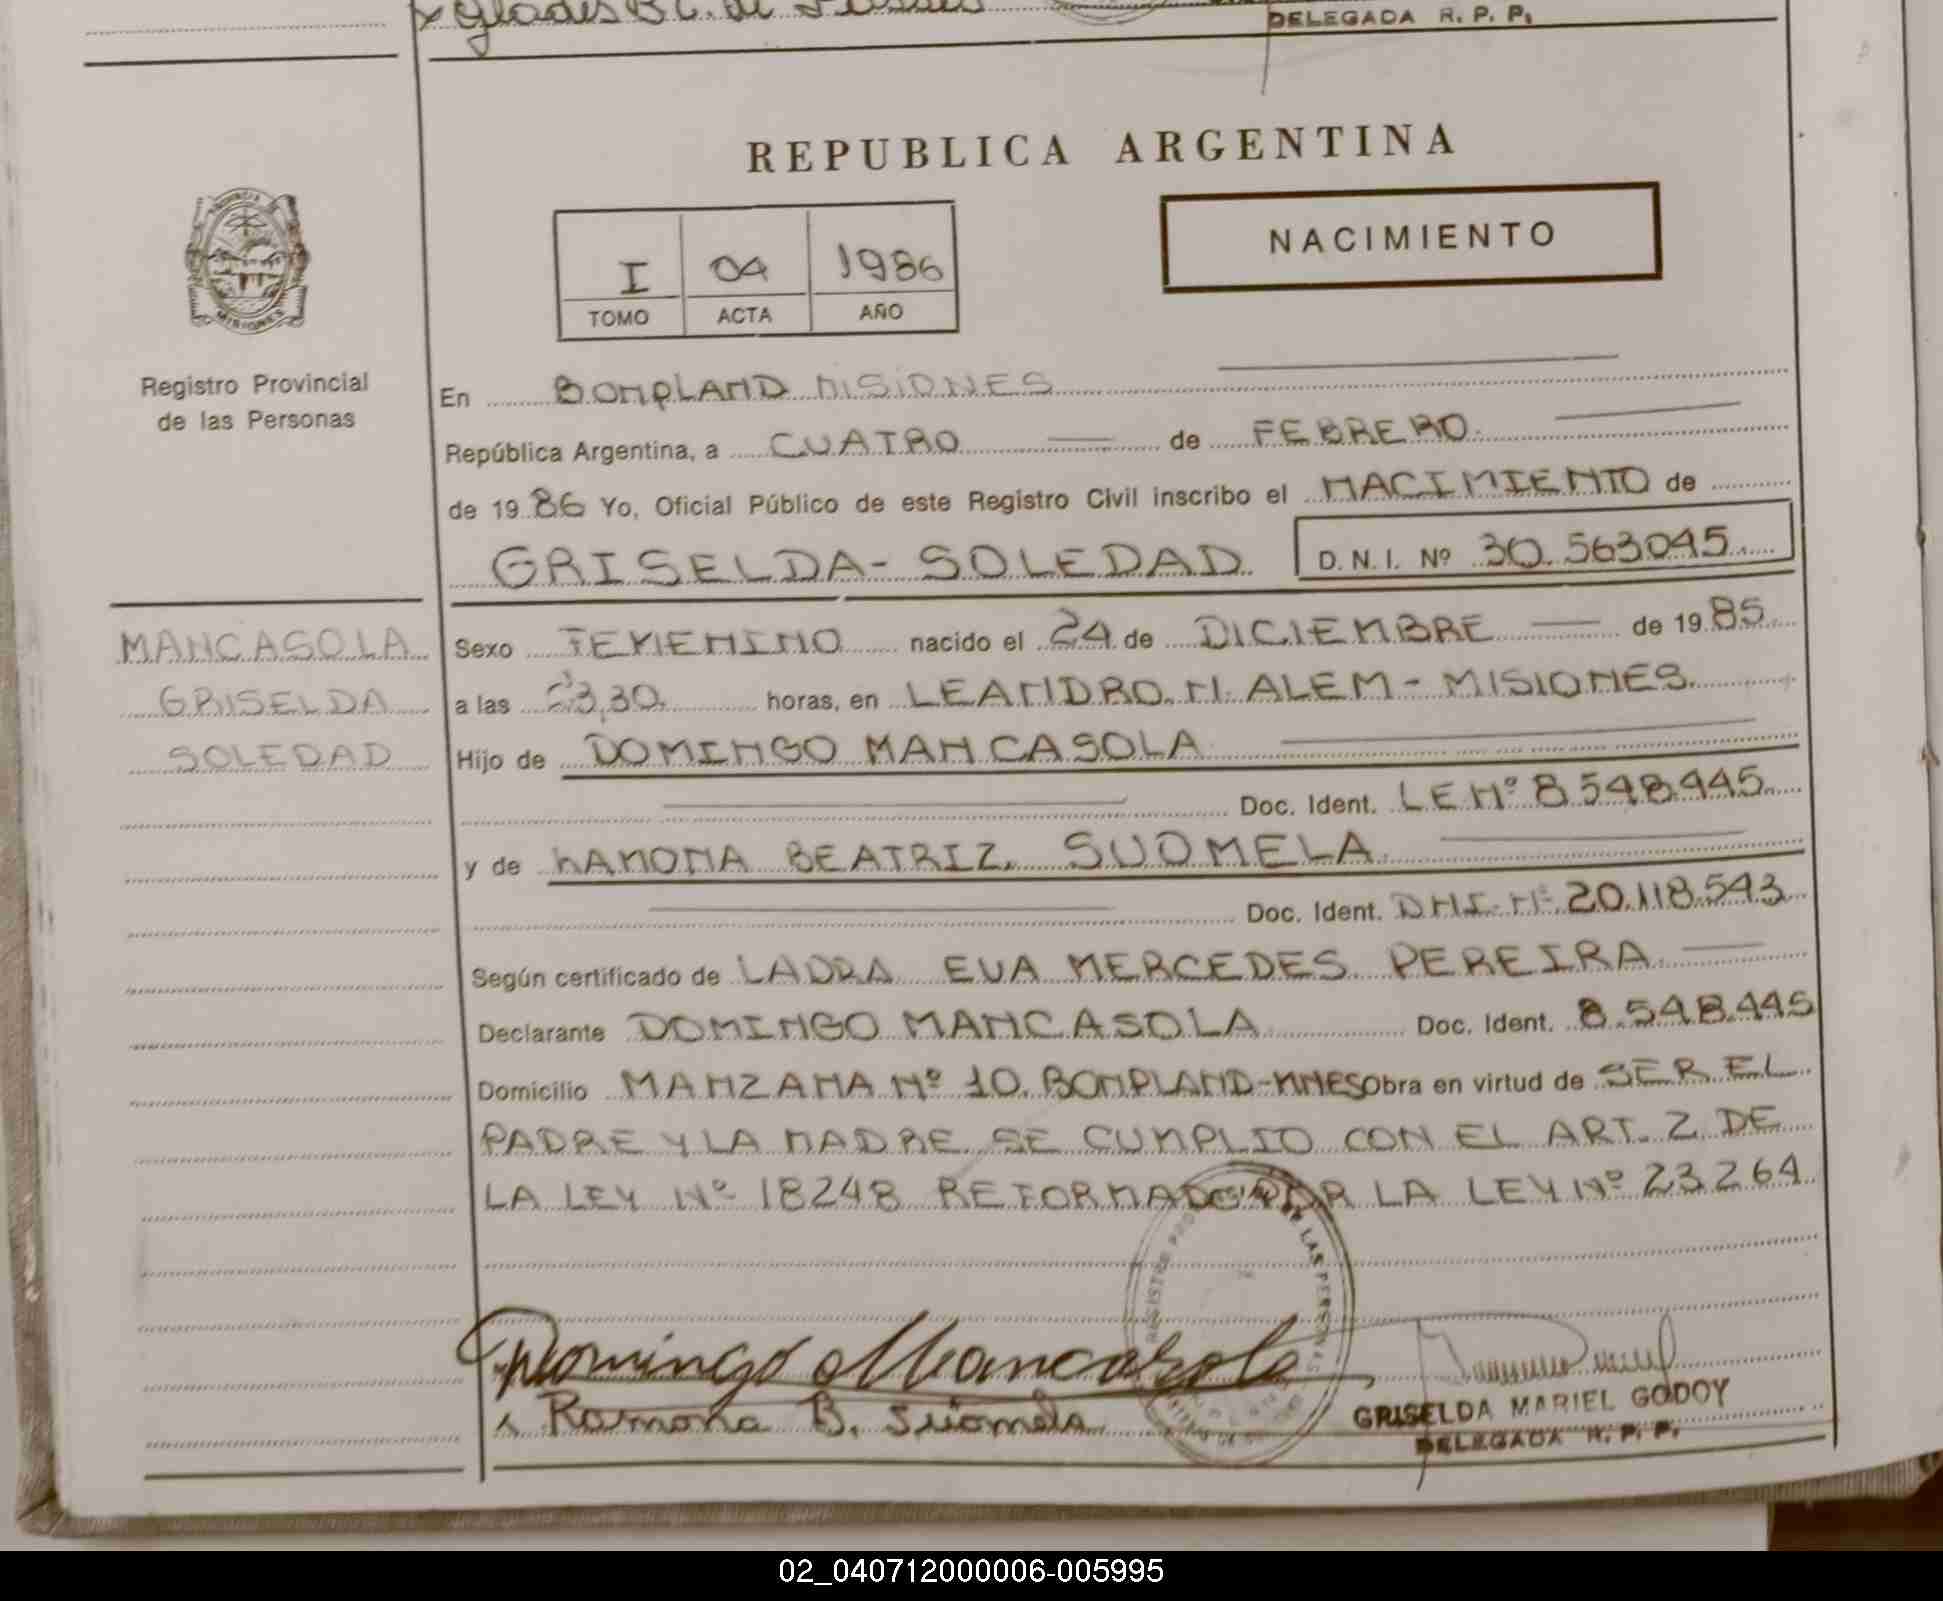 DELEGADA R. P. P.
REPUBLICA ARGENTINA
NACIMIENTO
I 04 1986
TOMO ACTA AÑO
PROVINCIA DE
MISIONES
Registro Provincial
de las Personas
En BOMPLAND MISIONES
República Argentina, a CUATRO de FEBRERO
de 1986 Yo, Oficial Público de este Registro Civil inscribo el NACIMIENTO de
GRISELDA - SOLEDAD D.N.I. Nº 30.563045
MANCASOLA
GRISELDA
SOLEDAD
Sexo FEMENINO nacido el 24 de DICIEMBRE de 1985
a las 23,30 horas, en LEANDRO. N. ALEM - MISIONES
Hijo de DOMINGO MANCASOLA
Doc. Ident. LE Nº 8.548.445
y de RAMONA BEATRIZ SUOMELA
Doc. Ident. DNI-Nº 20.118.543
Según certificado de LADRA EVA MERCEDES PEREIRA
Declarante DOMINGO MANCASOLA Doc. Ident. 8.548.445
Domicilio MANZANA Nº 10. BOMPLAND-MNES Obra en virtud de SER EL
PADRE Y LA MADRE SE CUMPLIO CON EL ART. 2 DE
LA LEY Nº 18248 REFORMADO POR LA LEY Nº 23264
REGISTRO LAS PERSONAS
Domingo Mancasola
Ramona B. Suomela
GRISELDA MARIEL GODOY
DELEGADA R. P. P.
02_040712000006-005995